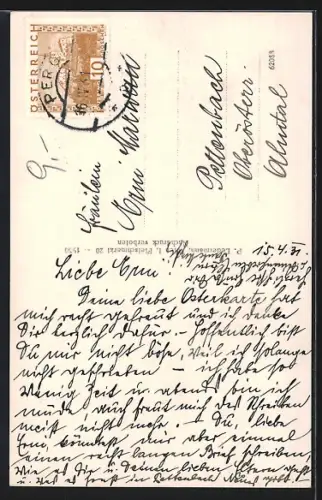 ÖSTERREICH
10
PERG
62055
9,-
Fräulein
Emi
Pettenbach
Oberösterr.
Almtal
P. Ledermann, Wien I, Fleischmarkt 20 – 1930
Nachdruck verboten
15.4.31.
Liebe Emi!
Deine liebe Osterkarte hat
mich recht gefreut und ich danke
Dir herzlich dafür. Hoffentlich bist
Du mir nicht böse, weil ich solange
nicht geschrieben – ich habe so
wenig Zeit u. abends bin ich
müde, auch freut mich das Schreiben
meist nicht mehr. – Du, liebe
Emi, könntest mir aber einmal
einen recht langen Brief schreiben,
wie es Dir u. Deinen lieben Eltern geht
u. was es sonst in Pettenbach Neues gibt.